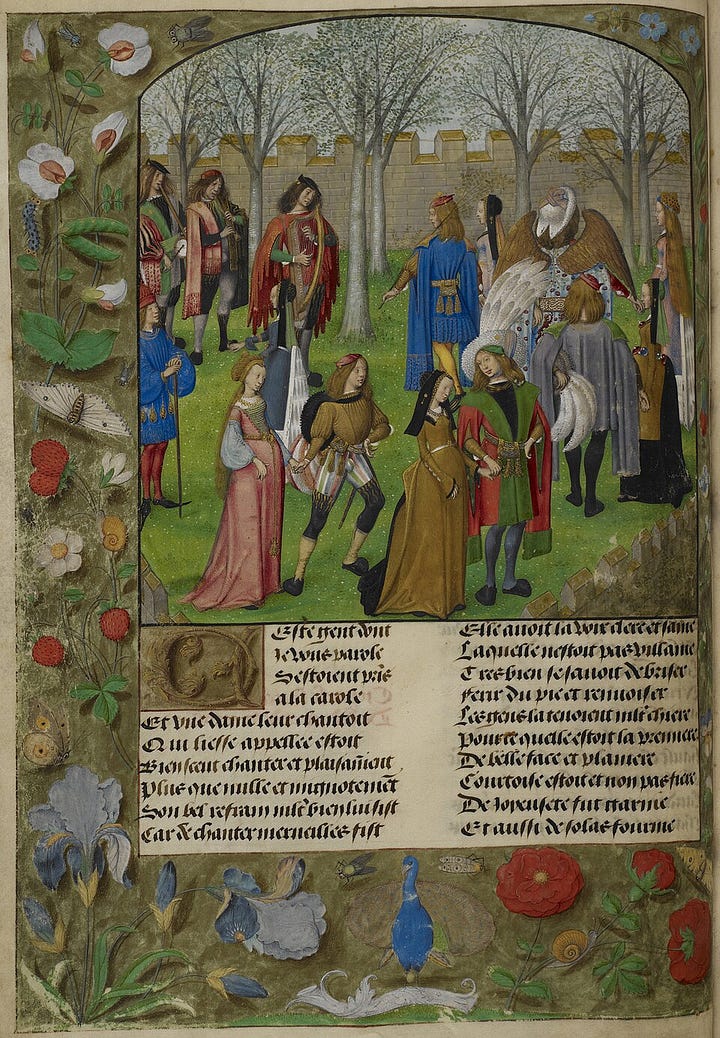 CEste gent dont
Je vous parole
Sestoient pris
a la carole
Et vne dame leur chantoit
Qui liesse appellee estoit
Bien sceut chanter et plaisãment
Plus que nulle et mignotemẽt
Son bel refrain mlt bien lui sist
Car de chanter merueilles fist
Elle auoit la voix clere et saine
Laquelle nestoit pas villaine
Tres bien se sauoit debriser
Ferir du pie et renuoiser
Les gens la tenoient mlt chiere
Pource quelle estoit la premiere
De belle face et planiere
Courtoise estoit et non pas fiere
De Joyeusete fut garnie
Et aussi de solas fournie